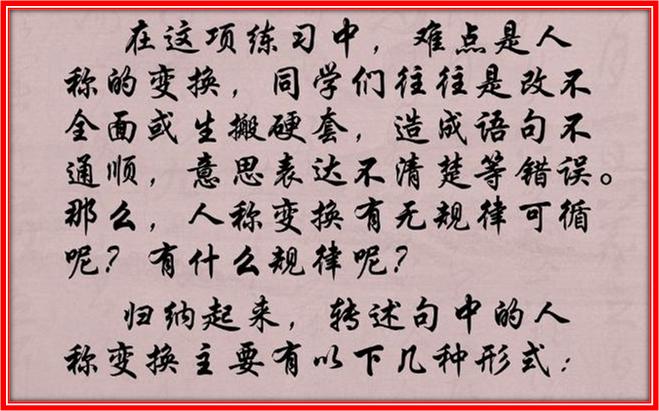 在这项练习中，难点是人
称的变换，同学们往往是改不
全面或生搬硬套，造成语句不
通顺，意思表达不清楚等错误。
那么，人称变换有无规律可循
呢？有什么规律呢？
归纳起来，转述句中的人
称变换主要有以下几种形式：